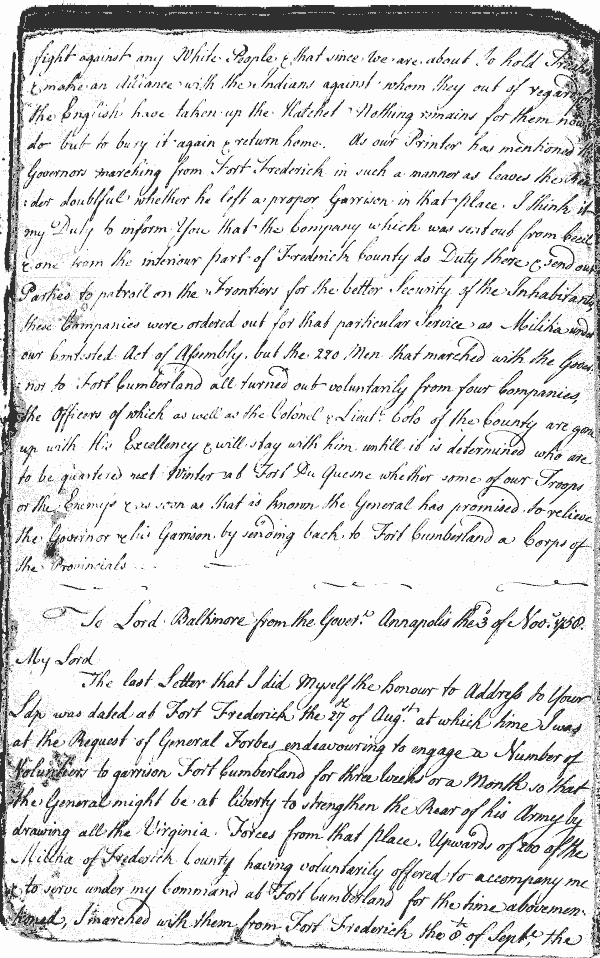 fight against any White People & that since we are about to hold
& make an Alliance with the Indians against whom they out of regard to
the English have taken up the Hatchet Nothing remains for them now
do but to bury it again & return home. As our Printer has mentioned
Governors marching from Fort Frederick in such a manner as leaves the
der doubtful whether he left a proper Garrison in that place. I think it
my Duty to inform You that the Company which was sent out from Cecil
& one from the interiour part of Frederick County do Duty there & send out
Parties to patroll on the Frontiers for the better Security of the Inhabitants,
these Companies were ordered out for that particular Service as Militia under
our Act of Assembly, but the 220 Men that marched with the Gover-
nor to Fort Cumberland all turned out voluntarily from four Companies,
the Officers of which as well as the Colonel & Lieut. Colo of the County are gone
up with His Excellency & will stay with him untill it is determined who are
to be quartered next Winter at Fort Du Quesne whether some of our Troops
or the Enemys & as soon as that is known the General has promised to relieve
the Governor & his Garrison by sending back to Fort Cumberland a Corps of
the Provincials
To Lord Baltimore from the Goverr. Annapolis the 3d of Novr. 1758.
My Lord
The last Letter that I did Myself the honour to Address to Your
Ldp was dated at Fort Frederick the 27 of Augst. at which time I was
at the Request of General Forbes endeavouring to engage a Number of
Volunteers to garrison Fort Cumberland for three weeks or a Month so that
the General might be at liberty to strengthen the Rear of his Army by
drawing all the Virginia Forces from that place. Upwards of 200 of the
Militia of Frederick County having voluntarily offered to accompany me
& to serve under my Command at Fort Cumberland for the time abovemen-
tioned, I marched with them from Fort Frederick the 8th of Septr, the